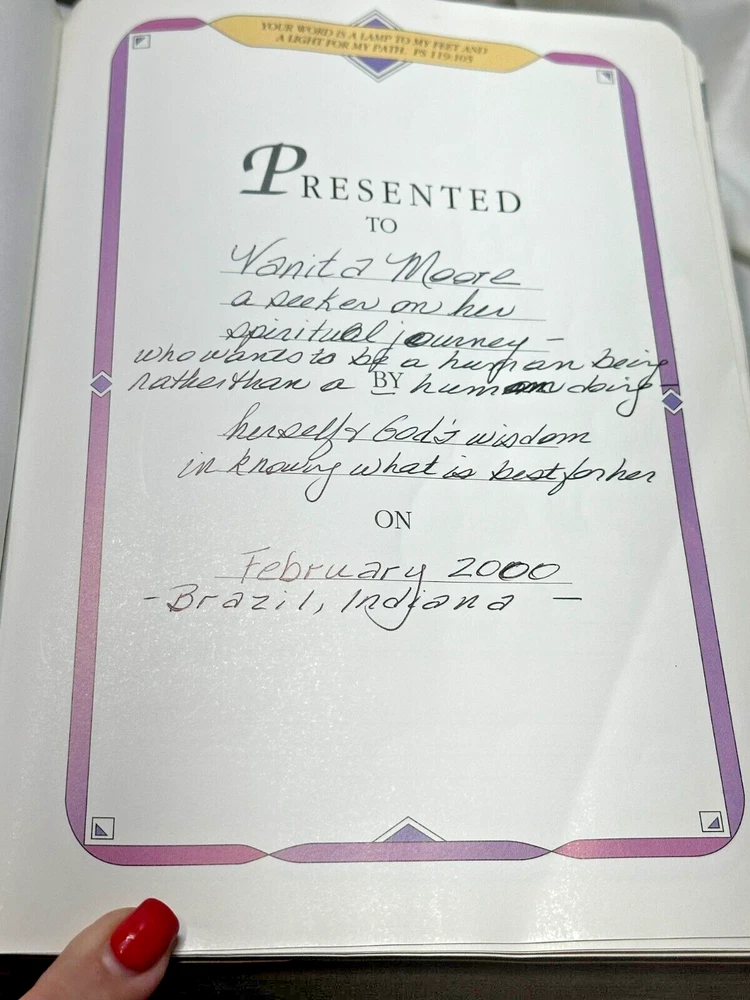 YOUR WORD IS A LAMP TO MY FEET AND
A LIGHT FOR MY PATH. PS 119:105
PRESENTED
TO
Vanita Moore
a seeker on her
spiritual journey -
who wants to be a human being
rather than a human doing -
BY
herself & God's wisdom
in knowing what is best for her
ON
February 2000
- Brazil, Indiana -